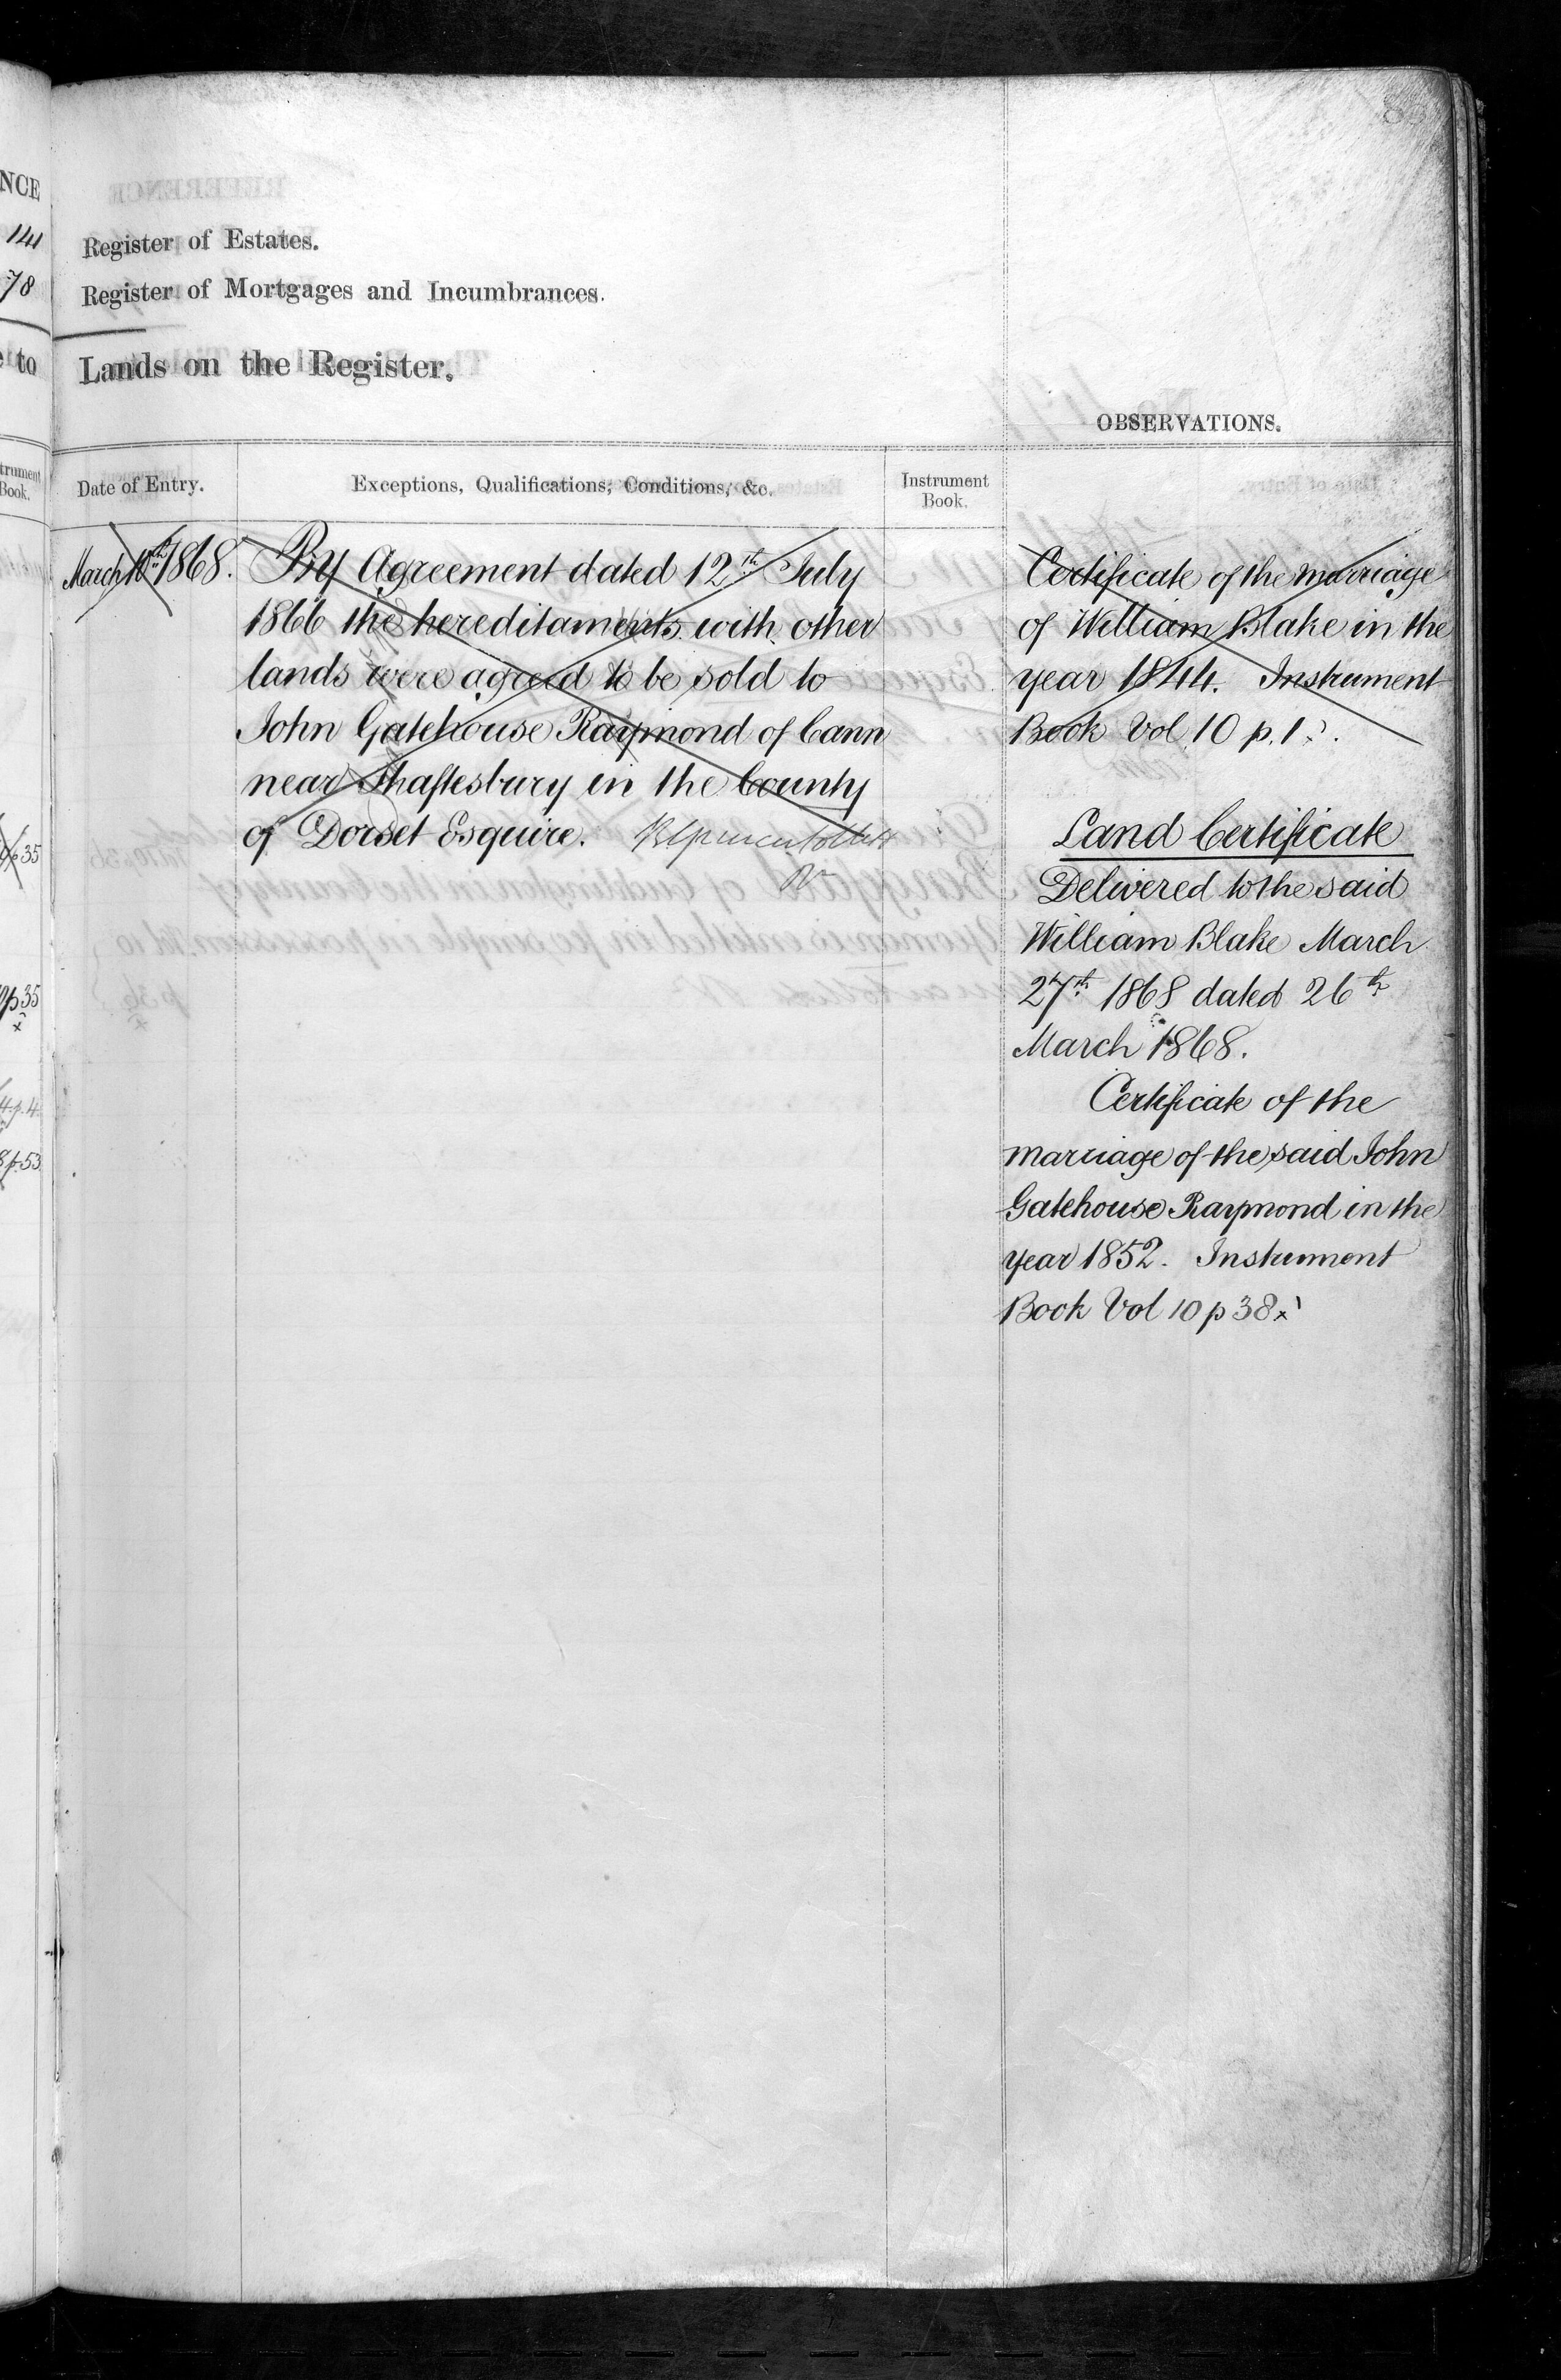 NCE
141
78
to
trument
Book.
35
p35
x
4 p. 4
8 p. 53
Register of Estates.
Register of Mortgages and Incumbrances.
Lands on the Register.
OBSERVATIONS.
Date of Entry.
Exceptions, Qualifications, Conditions, &c.
Instrument
Book.
March 10th 1868.
By Agreement dated 12th July
1866 the hereditaments with other
lands were agreed to be sold to
John Gatehouse Raymond of Cann
near Shaftesbury in the County
of Dorset Esquire.
Certificate of the marriage
of William Blake in the
year 1844. Instrument
Book Vol 10 p. 1
Land Certificate
Delivered to the said
William Blake March
27th 1868 dated 26th
March 1868.
Certificate of the
marriage of the said John
Gatehouse Raymond in the
year 1852. Instrument
Book Vol 10 p 38 x